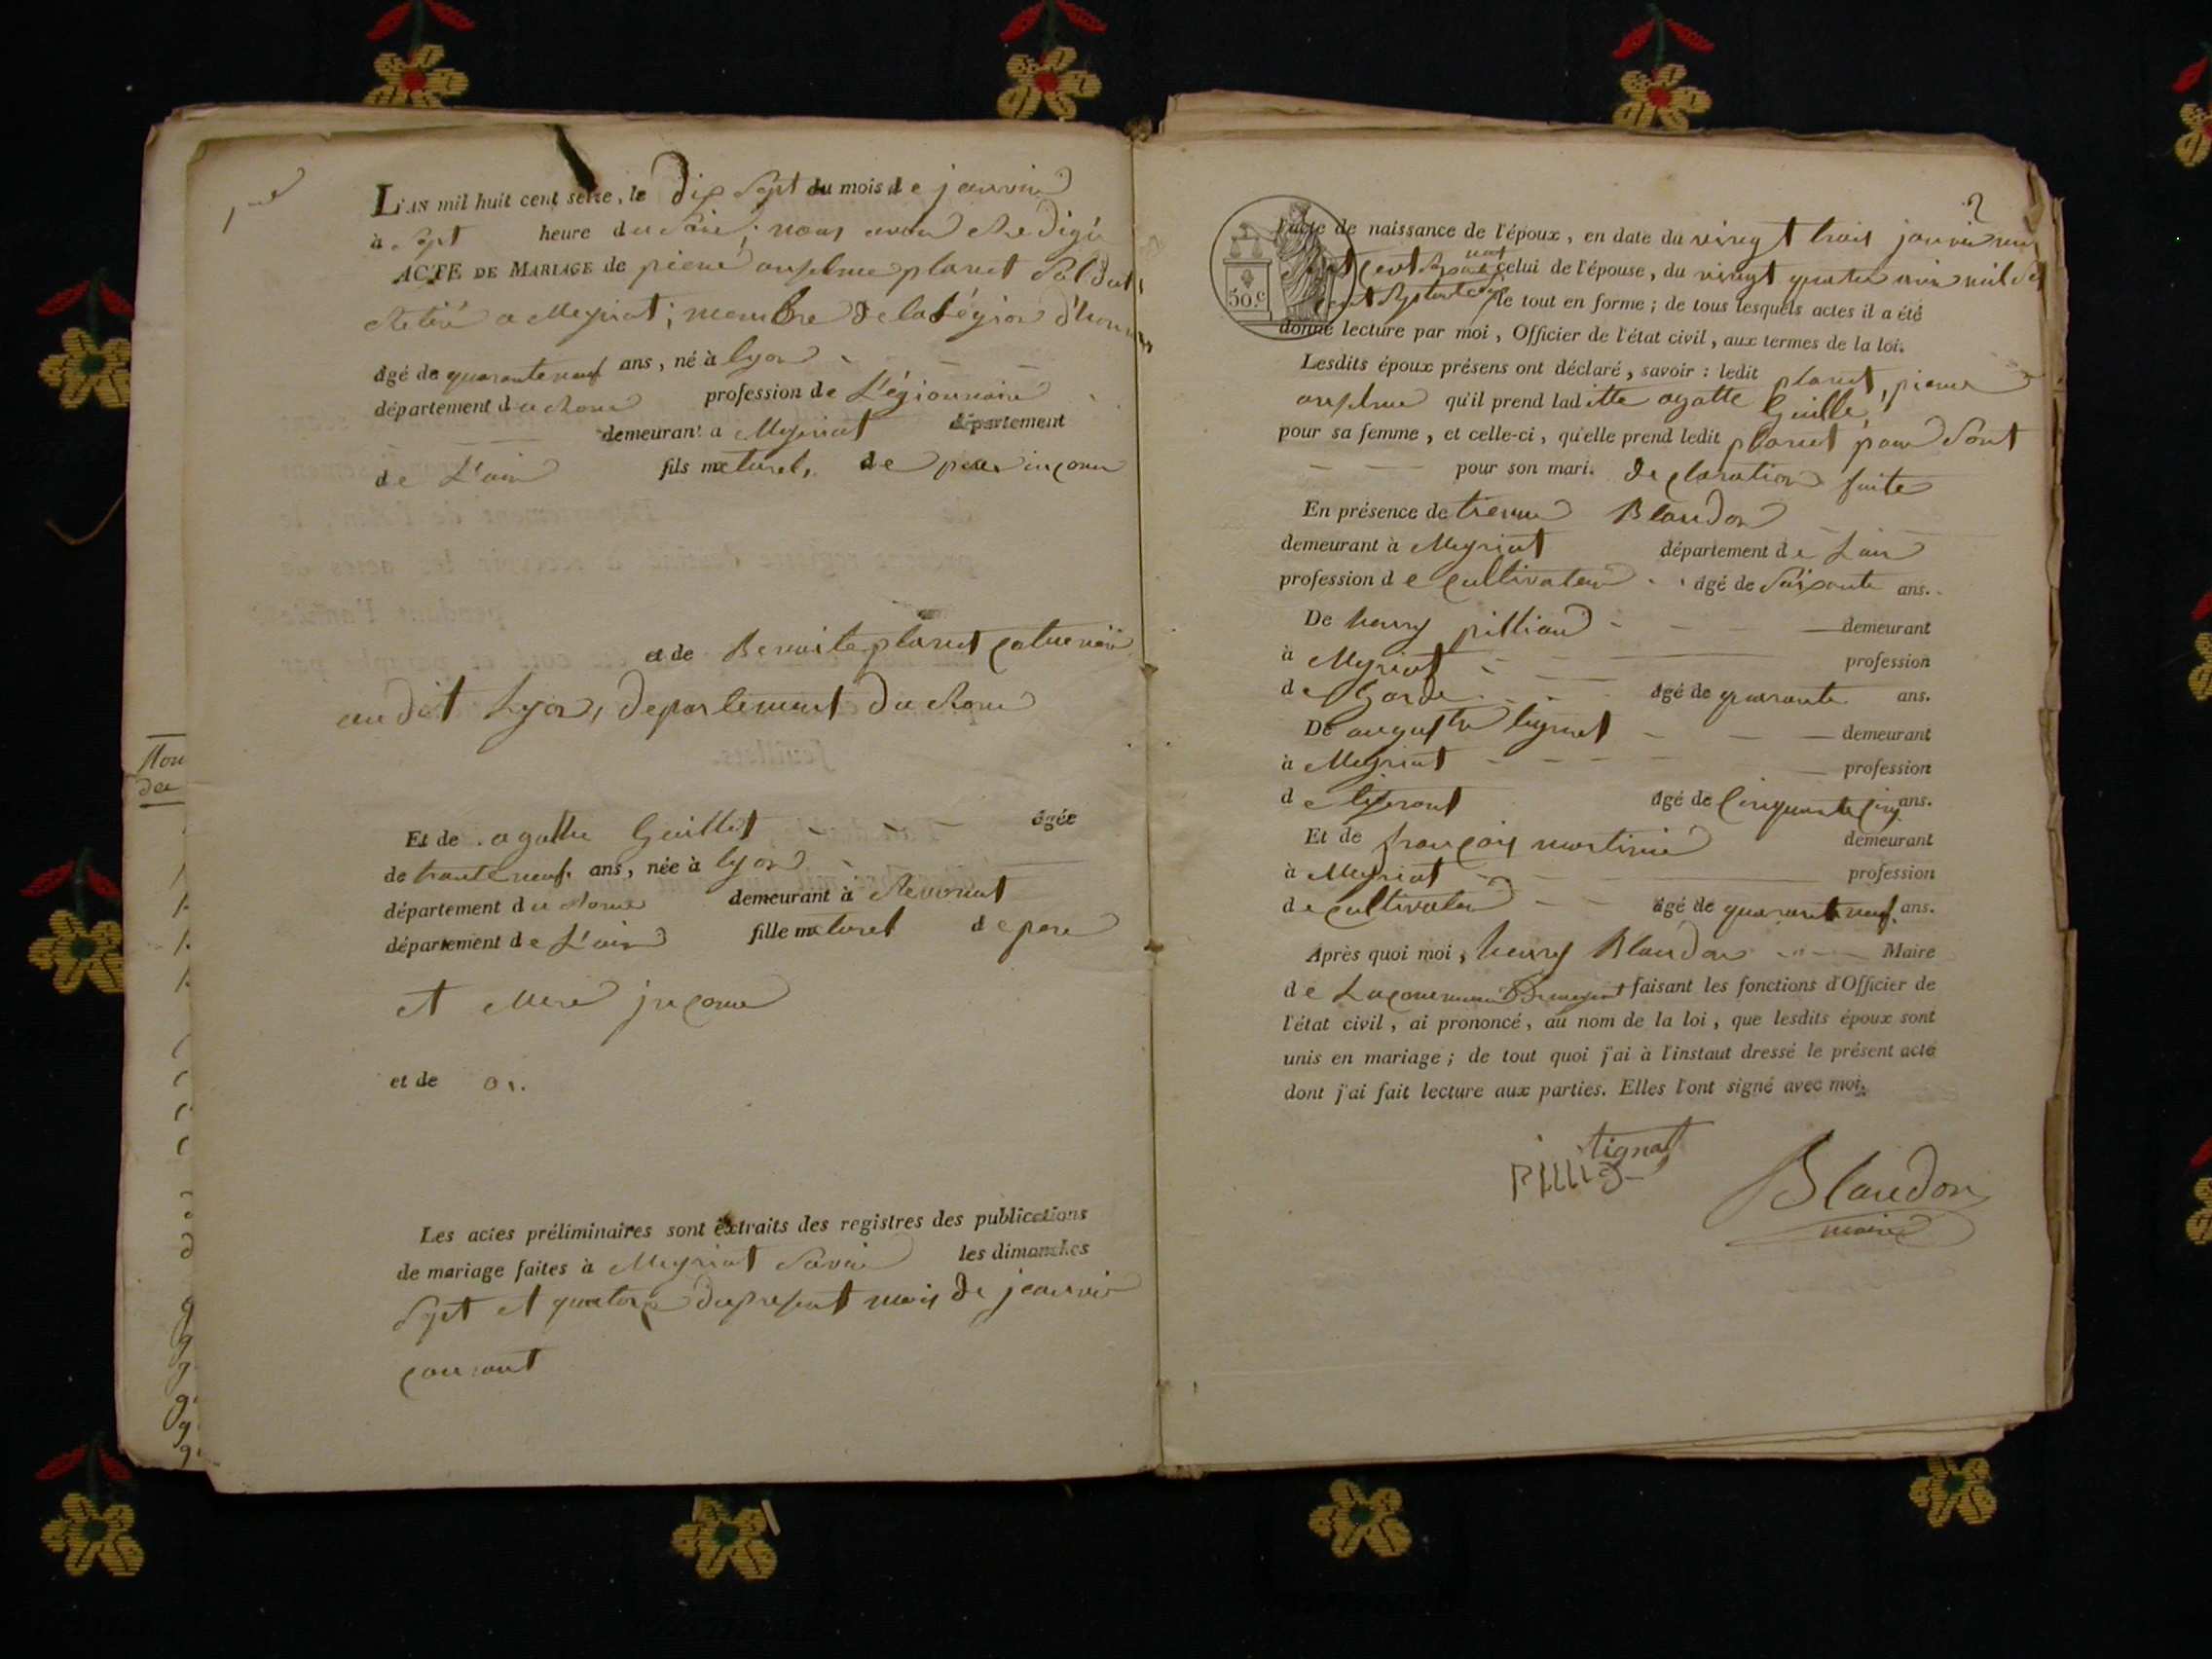 1
L'AN mil huit cent seize, le dix Sept du mois de janvier
à Sept heure du Soir; nous avons Redigé
ACTE DE MARIAGE de pierre anselme planet Soldat
Retiré a Meyriat; membre de la Légion d'honn
âgé de quarante neuf ans, né à lyon
département du Rone profession de Légionnaire
demeurant a Meyriat département
de L'ain fils naturel, de pere inconu
et de Benoite planet
au dit Lyon, departement du Rone
Et de agathe Guillot âgée
de trante neuf ans, née à lyon
département du Rone demeurant à Revonat
département de L'ain fille naturel de pere
et mere inconu
et de
Les actes préliminaires sont extraits des registres des publications
de mariage faites à Meyriat Savoir les dimanches
Sept et quatorze du present mois de janvier
courant
2
l'acte de naissance de l'époux, en date du vingt trois janvier mil
Sept cent celui de l'épouse, du vingt quatre mil Sept
cent le tout en forme; de tous lesquels actes il a été
donné lecture par moi, Officier de l'état civil, aux termes de la loi.
50.c
Lesdits époux présens ont déclaré, savoir: ledit planet, pierre
anselme qu'il prend laditte agatte Guille,
pour sa femme, et celle-ci, qu'elle prend ledit planet pour Sont
pour son mari. declaration faite
En présence de Blandon
demeurant à Meyriat département de Lain
profession de Cultivateur âgé de Soixante ans.
De henry pilliou demeurant
à Meyriat profession
de Garde âgé de quarante ans.
De auguste tignat demeurant
à Meyriat profession
de tisserant âgé de Cinquante Cinq ans.
Et de françois demeurant
à Meyriat profession
de Cultivateur âgé de quarante neuf ans.
Après quoi moi, henry Blandon Maire
de La commune de meyriat faisant les fonctions d'Officier de
l'état civil, ai prononcé, au nom de la loi, que lesdits époux sont
unis en mariage; de tout quoi j'ai à l'instaut dressé le présent acte
dont j'ai fait lecture aux parties. Elles l'ont signé avec moi.
tignat
Blandon
maire